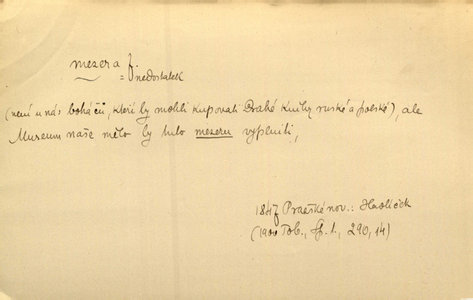 mezera f.
= nedostatek
(není u nás boháčů, kteří by mohli kupovati drahé knihy ruské a polské), ale
Museum naše mělo by tuto mezeru vyplniti,
1847 Pražské nov.: Havlíček
(1900 Tob., Sp. 1, 290, 14)